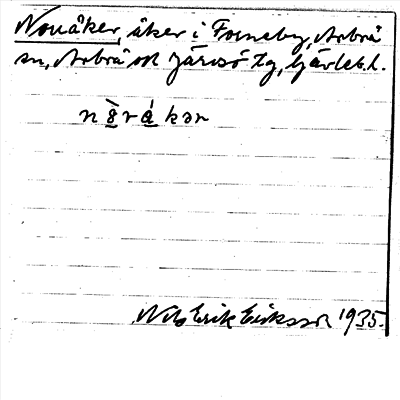 Noråker, åker i Forneby, Arbrå
sn, Arbrå och Järvsö tg, Gävlebl.
nè̱rá̱kər
Nils Erik Eriksson 1935.